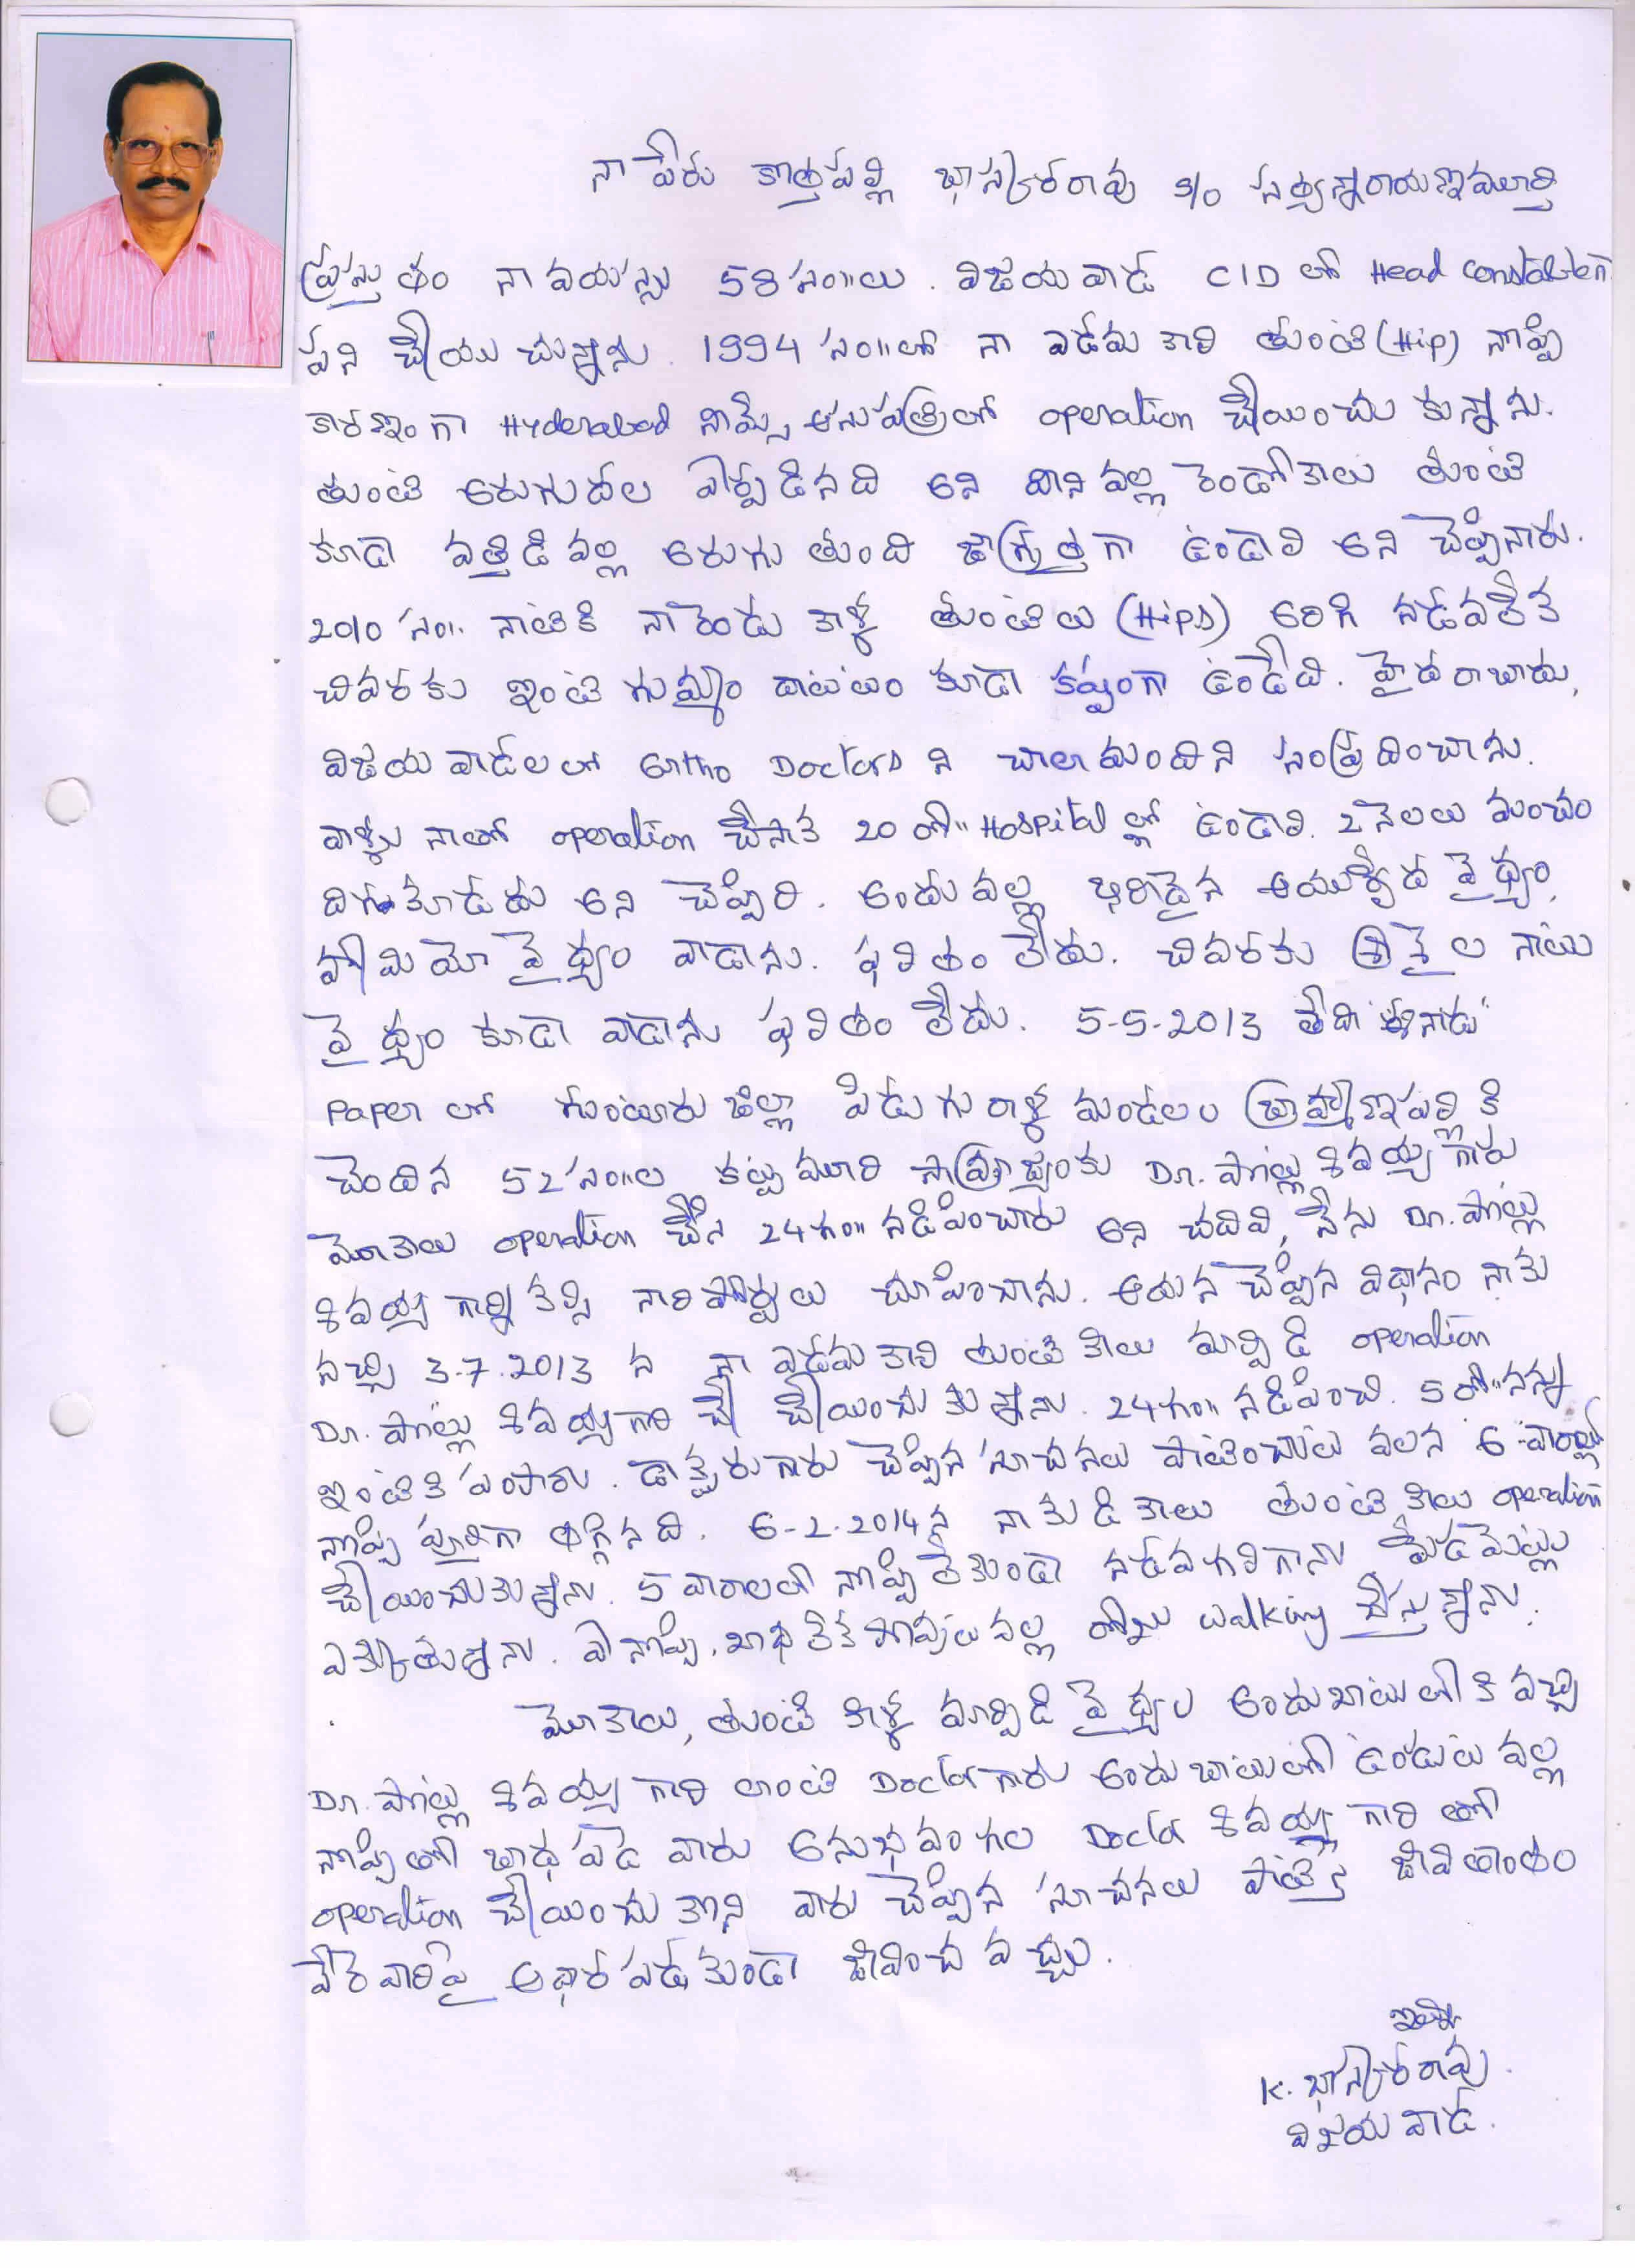 నా పేరు కొత్తపల్లి భాస్కరరావు S/o సత్యన్నారాయణమూర్తి
ప్రస్తుతం నా వయస్సు 58 సం॥లు. విజయవాడ CID లో Head Constableగా
పని చేయు చున్నాను. 1994 సం॥లో నా ఎడమ కాలి తుంటి (Hip) నొప్పి
కారణంగా Hyderabad నిమ్స్ ఆసుపత్రిలో operation చేయించు కున్నాను.
తుంటి అరుగుదల ఏర్పడినది అని దాని వల్ల రెండో కాలు తుంటి
కూడా వత్తిడి వల్ల అరుగు తుంది జాగ్రత్తగా ఉండాలి అని చెప్పినారు.
2010 సం॥ నాటికి నా రెండు కాళ్ళ తుంటిలు (Hips) అరిగి నడవలేక
చివరకు ఇంటి గుమ్మం దాటటం కూడా కష్టంగా ఉండేది. హైదరాబాదు,
విజయవాడలలో Ortho Doctors ని చాలా మందిని సంప్రదించాను.
వాళ్ళు నాతో operation చేసాక 20 రో॥ Hospital ల్లో ఉండాలి. 2 నెలలు మంచం
దిగకూడదు అని చెప్పిరి. అందువల్ల ఖరీదైన ఆయుర్వేద వైద్యం,
హోమియో వైద్యం వాడాను. ఫలితం లేదు. చివరకు శ్రీశైల నాటు
వైద్యం కూడా వాడాను ఫలితం లేదు. 5-5-2013 తేదీ "ఈనాడు"
Paper లో గుంటూరు జిల్లా పిడుగురాళ్ళ మండలం బ్రాహ్మణపల్లి కి
చెందిన 52 సం॥ల కట్టమూరి సామ్రాజ్యంకు Dr. పోట్లు శివయ్య గారు
మోకాలు operation చేసి 24 గం॥ నడిపించారు అని చదివి, నేను Dr. పోట్లు
శివయ్య గార్ని కల్సి నా రిపోర్టులు చూపించాను. ఆయన చెప్పిన విధానం నాకు
నచ్చి 3.7.2013 న నా ఎడమ కాలి తుంటి కీలు మార్పిడి operation
Dr. పోట్లు శివయ్య గారి చే చేయించు కున్నాను. 24 గం॥ నడిపించి. 5 రో॥ నన్ను
ఇంటికి పంపారు. డాక్టరు గారు చెప్పిన సూచనలు పాటించుట వలన 6 వారాల్లో
నొప్పి పూర్తిగా తగ్గినది. 6-2-2014న నా కుడి కాలు తుంటి కీలు operation
చేయించుకున్నాను. 5 వారాలలో నొప్పి లేకుండా నడవగలిగాను మేడమెట్లు
ఎక్కుతున్నాను. ఏ నొప్పి, బాధ లేక పోవుట వల్ల రోజు walking చేస్తున్నాను.
మోకాలు, తుంటి కీళ్ళ మార్పిడి వైద్యం అందుబాటులోకి వచ్చి
Dr. పోట్లు శివయ్య గారి లాంటి Doctor గారు అందుబాటులో ఉండుట వల్ల
నొప్పితో బాధ పడే వారు అనుభవం గల Doctor శివయ్య గారి తో
operation చేయించు కొని వారు చెప్పిన సూచనలు పాటిస్తే జీవితాంతం
వేరే వారిపై ఆధార పడకుండా జీవించ వచ్చు.
ఇట్లు
K. భాస్కరరావు.
విజయవాడ.